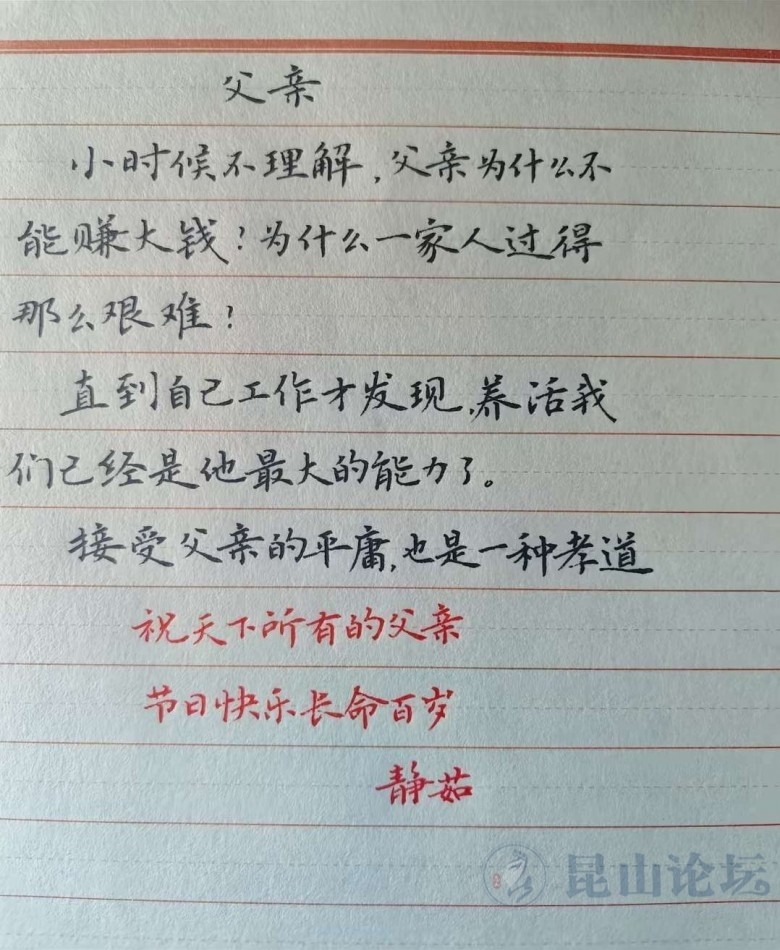 父亲
小时候不理解,父亲为什么不
能赚大钱?为什么一家人过得
那么艰难?
直到自己工作才发现,养活我
们已经是他最大的能力了。
接受父亲的平庸,也是一种孝道
祝天下所有的父亲
节日快乐长命百岁
静茹
昆山论坛